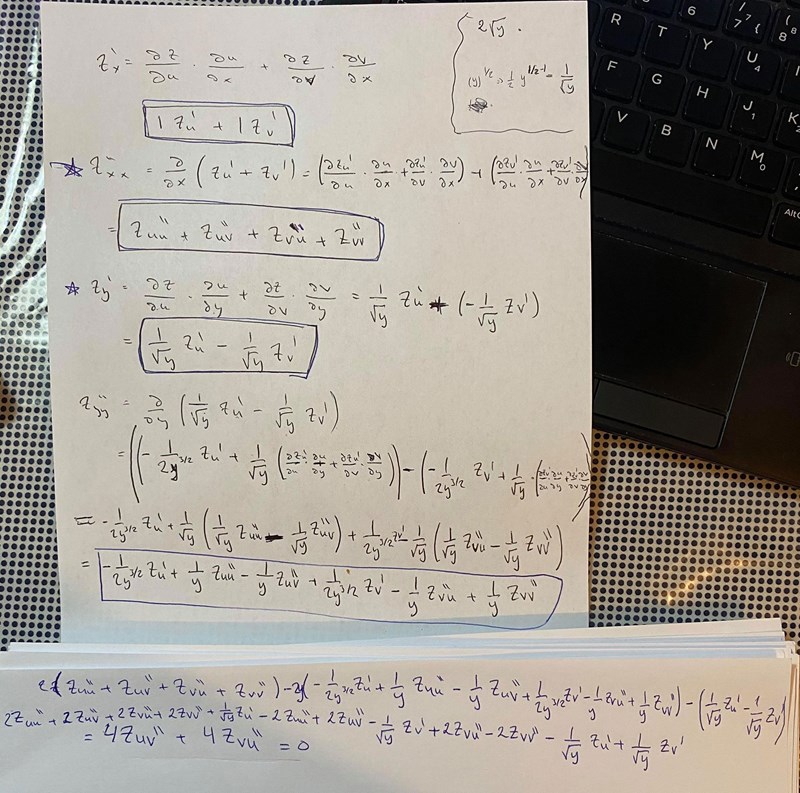 z'ₓ = ∂z/∂u · ∂u/∂x + ∂z/∂v · ∂v/∂x
1 z'ᵤ + 1 z'ᵥ
z''ₓₓ = ∂/∂x (z'ᵤ + z'ᵥ) = (∂z'ᵤ/∂u · ∂u/∂x + ∂z'ᵤ/∂v · ∂v/∂x) + (∂z'ᵥ/∂u · ∂u/∂x + ∂z'ᵥ/∂v · ∂v/∂x)
= z''ᵤᵤ + z''ᵤᵥ + z''ᵥᵤ + z''ᵥᵥ
z'_y = ∂z/∂u · ∂u/∂y + ∂z/∂v · ∂v/∂y = 1/√y z'ᵤ + (-1/√y z'ᵥ)
= 1/√y z'ᵤ - 1/√y z'ᵥ
z''_yy = ∂/∂y (1/√y z'ᵤ - 1/√y z'ᵥ)
= ((-1/2y^3/2 z'ᵤ + 1/√y (∂z'ᵤ/∂u · ∂u/∂y + ∂z'ᵤ/∂v · ∂v/∂y)) - (-1/2y^3/2 z'ᵥ + 1/√y · (∂z'ᵥ/∂u · ∂u/∂y + ∂z'ᵥ/∂v · ∂v/∂y))
= -1/2y^3/2 z'ᵤ + 1/√y (1/√y z''ᵤᵤ - 1/√y z''ᵤᵥ) + 1/2y^3/2 z'ᵥ - 1/√y (1/√y z''ᵥᵤ - 1/√y z''ᵥᵥ)
= -1/2y^3/2 z'ᵤ + 1/y z''ᵤᵤ - 1/y z''ᵤᵥ + 1/2y^3/2 z'ᵥ - 1/y z''ᵥᵤ + 1/y z''ᵥᵥ
2√y .
(y)^1/2 => 1/2 y^1/2-1 = 1/√y
2(z''ᵤᵤ + z''ᵤᵥ + z''ᵥᵤ + z''ᵥᵥ) - 2y(-1/2y^3/2 z'ᵤ + 1/y z''ᵤᵤ - 1/y z''ᵤᵥ + 1/2y^3/2 z'ᵥ - 1/y z''ᵥᵤ + 1/y z''ᵥᵥ) - (1/√y z'ᵤ - 1/√y z'ᵥ)
2z''ᵤᵤ + 2z''ᵤᵥ + 2z''ᵥᵤ + 2z''ᵥᵥ + 1/√y z'ᵤ - 2z''ᵤᵤ + 2z''ᵤᵥ - 1/√y z'ᵥ + 2z''ᵥᵤ - 2z''ᵥᵥ - 1/√y z'ᵤ + 1/√y z'ᵥ
= 4z''ᵤᵥ + 4z''ᵥᵤ = 0
R
T
Y
U 4
F
G
H
J 1
V
B
N
M 0
Alt